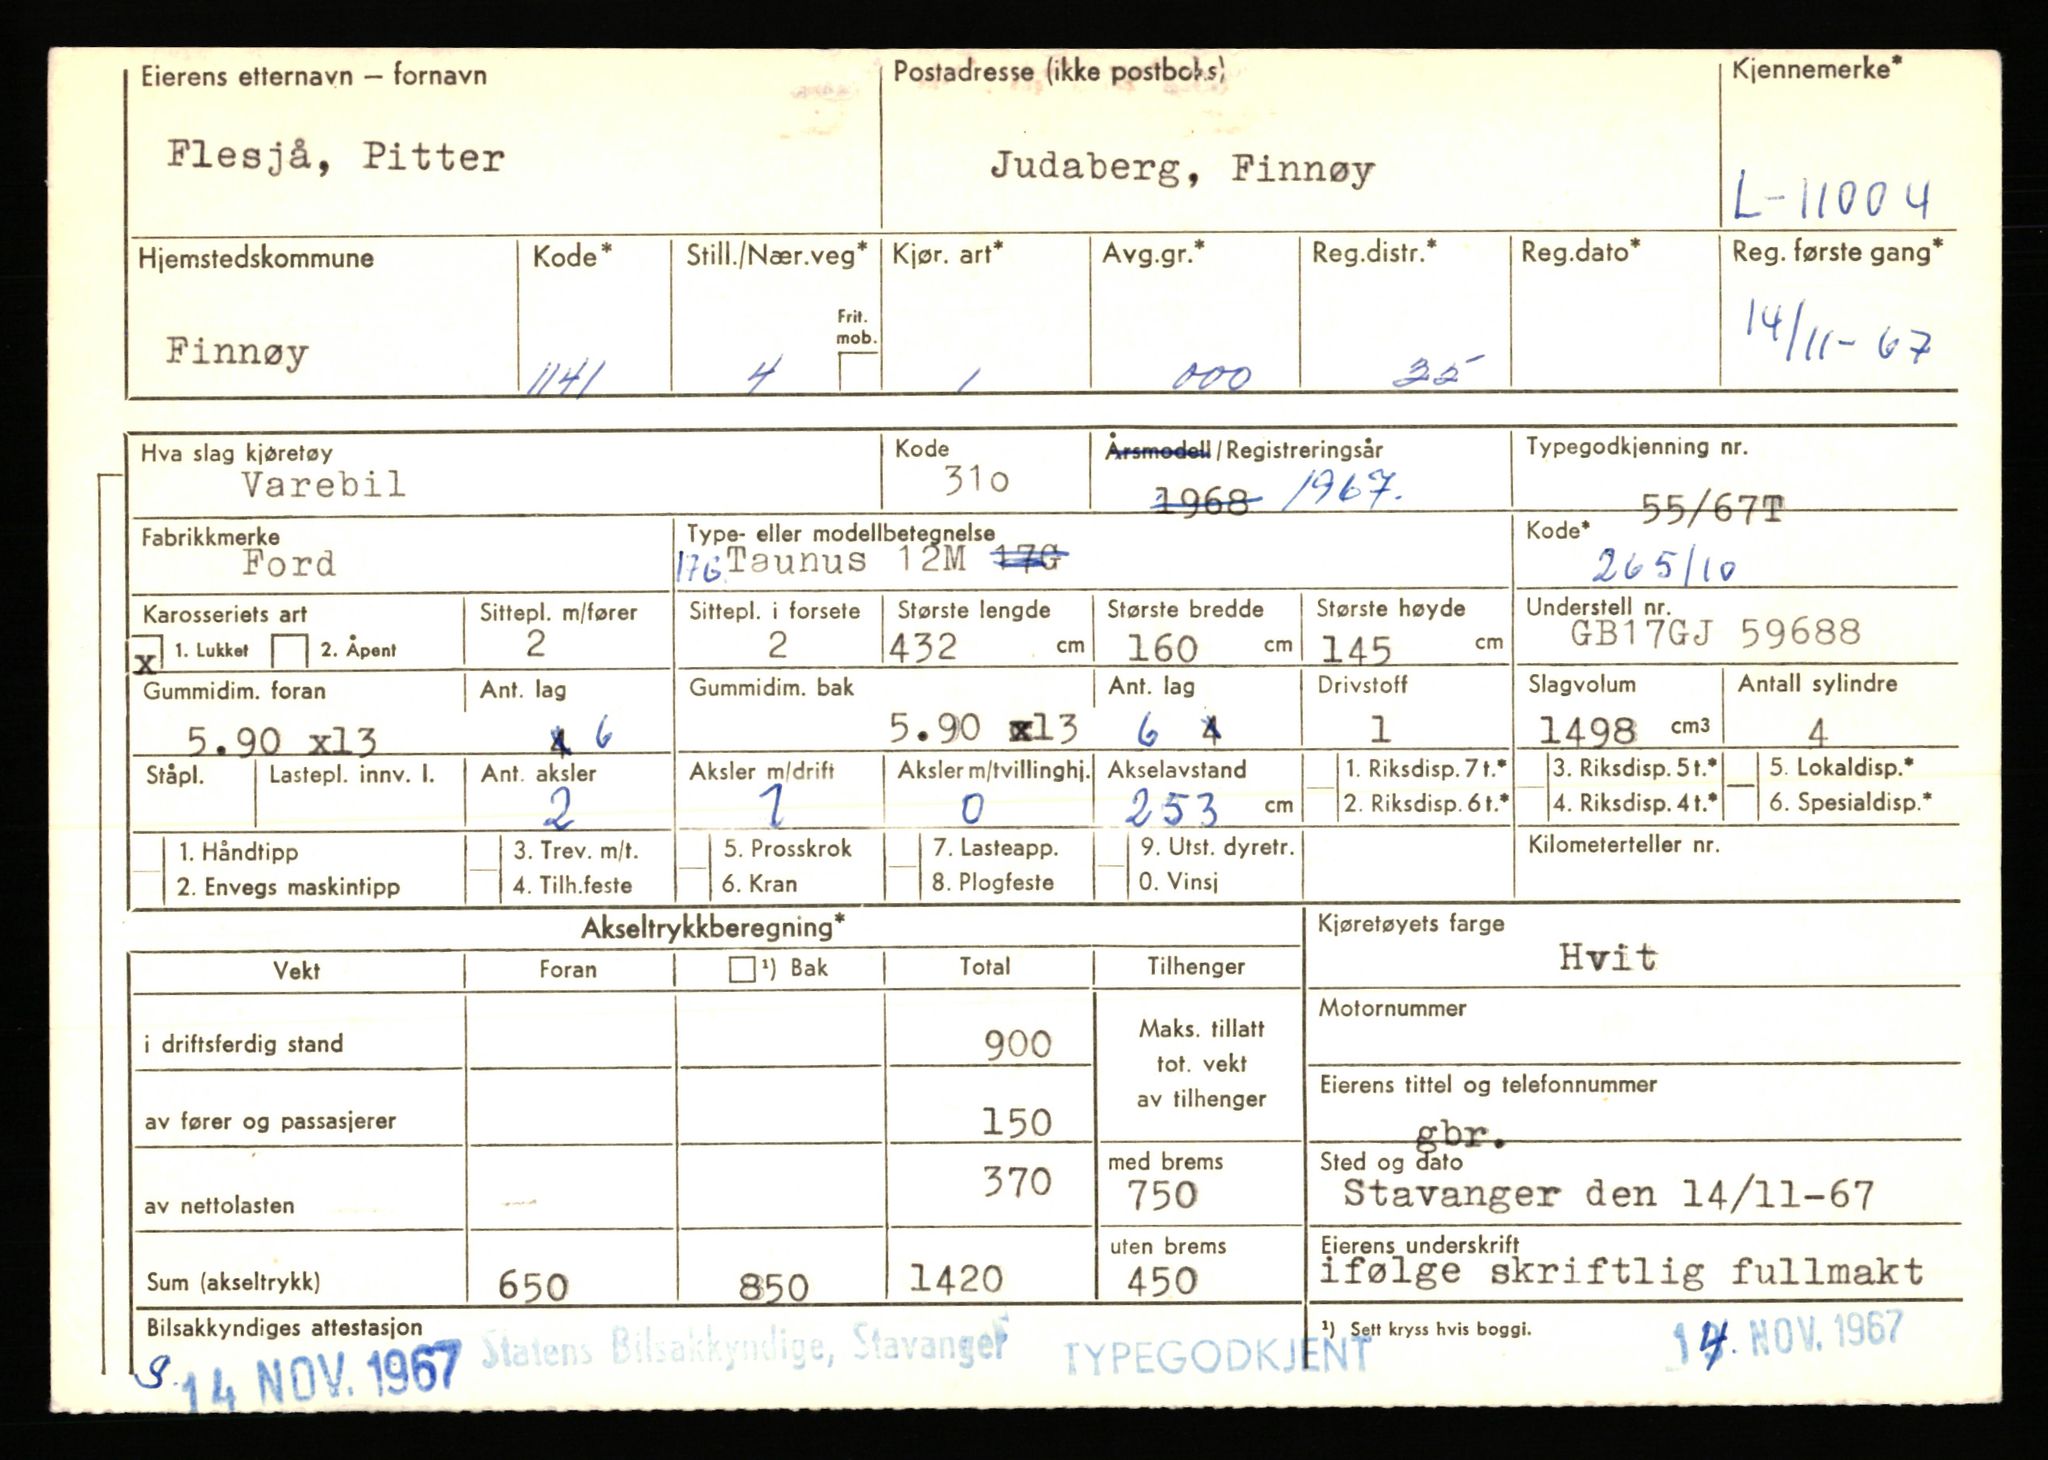 Eierens etternavn – fornavn Postadresse (ikke postboks) Kjennemerke*
Flesjå, Pitter Judaberg, Finnøy L-11004
Hjemstedskommune Kode* Still./Nær.veg* Kjør. art* Avg.gr.* Reg.distr.* Reg.dato* Reg. første gang*
Frit. mob.
Finnøy 1141 4 1 000 35 14/11-67
Hva slag kjøretøy Kode Årsmodell/Registreringsår Typegodkjenning nr.
Varebil 310 1968 1967. 55/67T
Fabrikkmerke Type- eller modellbetegnelse Kode*
Ford 17G Taunus 12M 17G 265/10
Karosseriets art Sittepl. m/fører Sittepl. i forsete Største lengde Største bredde Største høyde Understell nr.
x 1. Lukket 2. Åpent 2 2 432 cm 160 cm 145 cm GB17GJ 59688
Gummidim. foran Ant. lag Gummidim. bak Ant. lag Drivstoff Slagvolum Antall sylindre
5.90 x13 4 6 5.90 x13 6 4 1 1498 cm3 4
Ståpl. Lastepl. innv. l. Ant. aksler Aksler m/drift Aksler m/tvillinghj. Akselavstand 1. Riksdisp. 7 t.* 3. Riksdisp. 5 t.* 5. Lokaldisp.*
2 1 0 253 cm 2. Riksdisp. 6 t.* 4. Riksdisp. 4 t.* 6. Spesialdisp.*
1. Håndtipp 3. Trev. m/t. 5. Prosskrok 7. Lasteapp. 9. Utst. dyretr. Kilometerteller nr.
2. Envegs maskintipp 4. Tilh.feste 6. Kran 8. Plogfeste 0. Vinsj
Akseltrykkberegning* Kjøretøyets farge
Hvit
Vekt Foran ¹) Bak Total Tilhenger
Motornummer
i driftsferdig stand 900 Maks. tillatt
tot. vekt
av tilhenger
Eierens tittel og telefonnummer
av fører og passasjerer 150 gbr.
med brems Sted og dato
av nettolasten 370 750 Stavanger den 14/11-67
uten brems Eierens underskrift
Sum (akseltrykk) 650 850 1420 450 ifølge skriftlig fullmakt
Bilsakkyndiges attestasjon ¹) Sett kryss hvis boggi.
14 NOV. 1967 Statens Bilsakkyndige, Stavanger TYPEGODKJENT 14. NOV. 1967